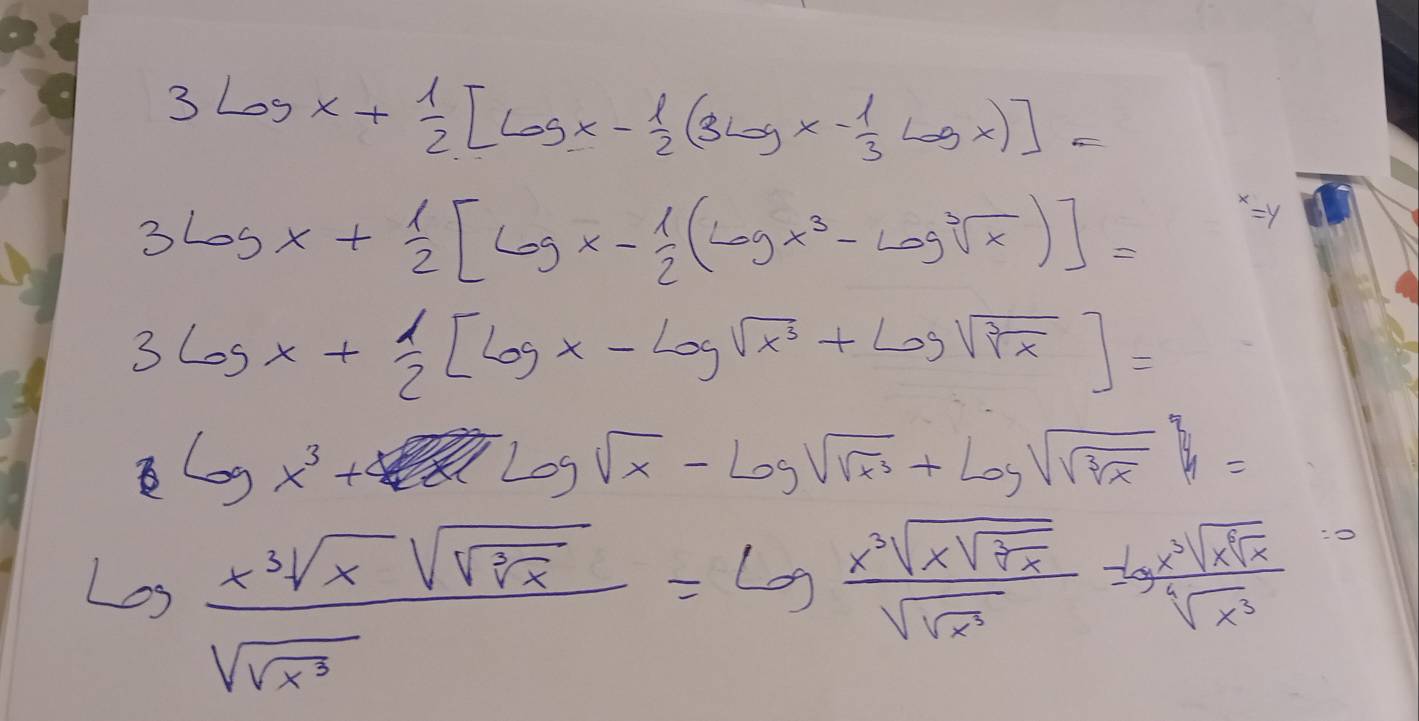 3 Log x + 1/2 [Log x - 1/2 (3 Log x - 1/3 Log x)] =
3 Log x + 1/2 [Log x - 1/2 (Log x³ - Log ∛x)] =
x = y
3 Log x + 1/2 [Log x - Log √(x³) + Log √(∛x)] =
Log x³ + Log √x - Log √(√(x³)) + Log √(√(∛x)) =
Log (x³ √x √(√(∛x))) / √(√(x³)) = Log (x³ √(x √(∛x))) / √(√(x³)) = log (x³ √(x ⁶√x)) / ⁴√(x³)